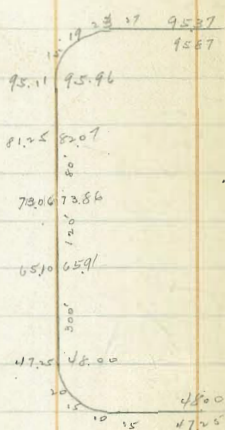 15 19 23 27 95.37
95.87
95.11 95.96
81.25 82.07
80'
73.06 73.86
120'
65.10 65.91
300'
47.25 48.00
20 15 10 15 48.00
47.25